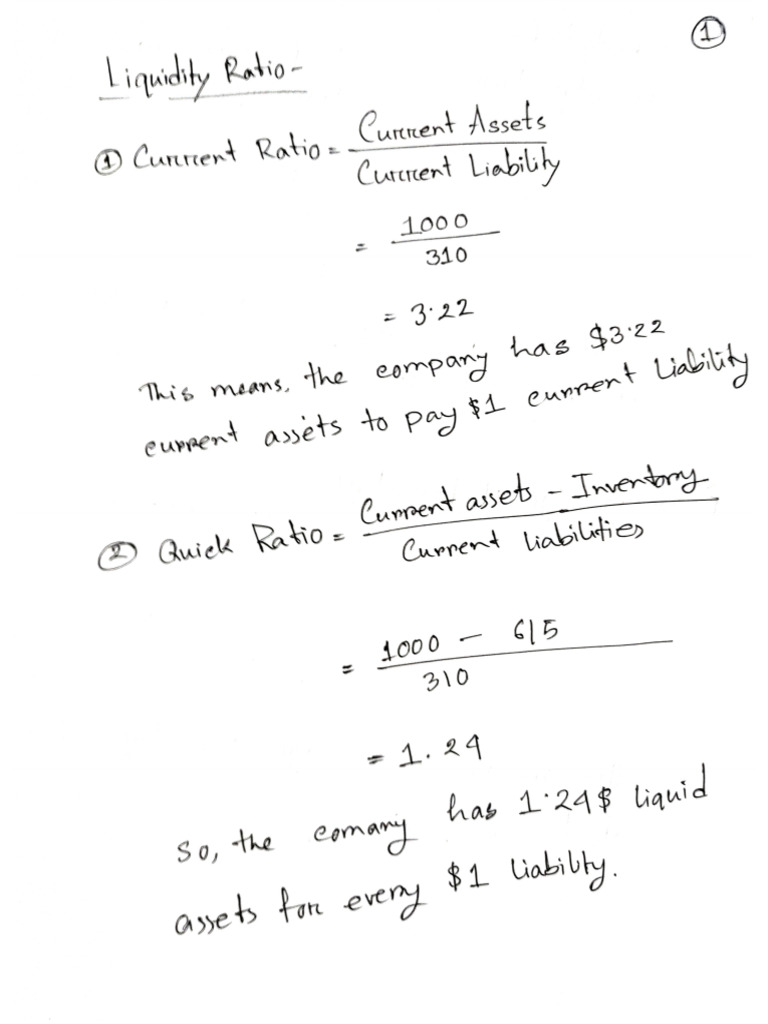 ①
Liquidity Ratio-
① Current Ratio = Current Assets / Current Liability
= 1000 / 310
= 3.22
This means, the company has $3.22
current assets to pay $1 current Liability
② Quick Ratio = Current assets - Inventory / Current liabilities
= 1000 - 615 / 310
= 1.24
So, the comany has 1.24$ liquid
assets for every $1 liability.